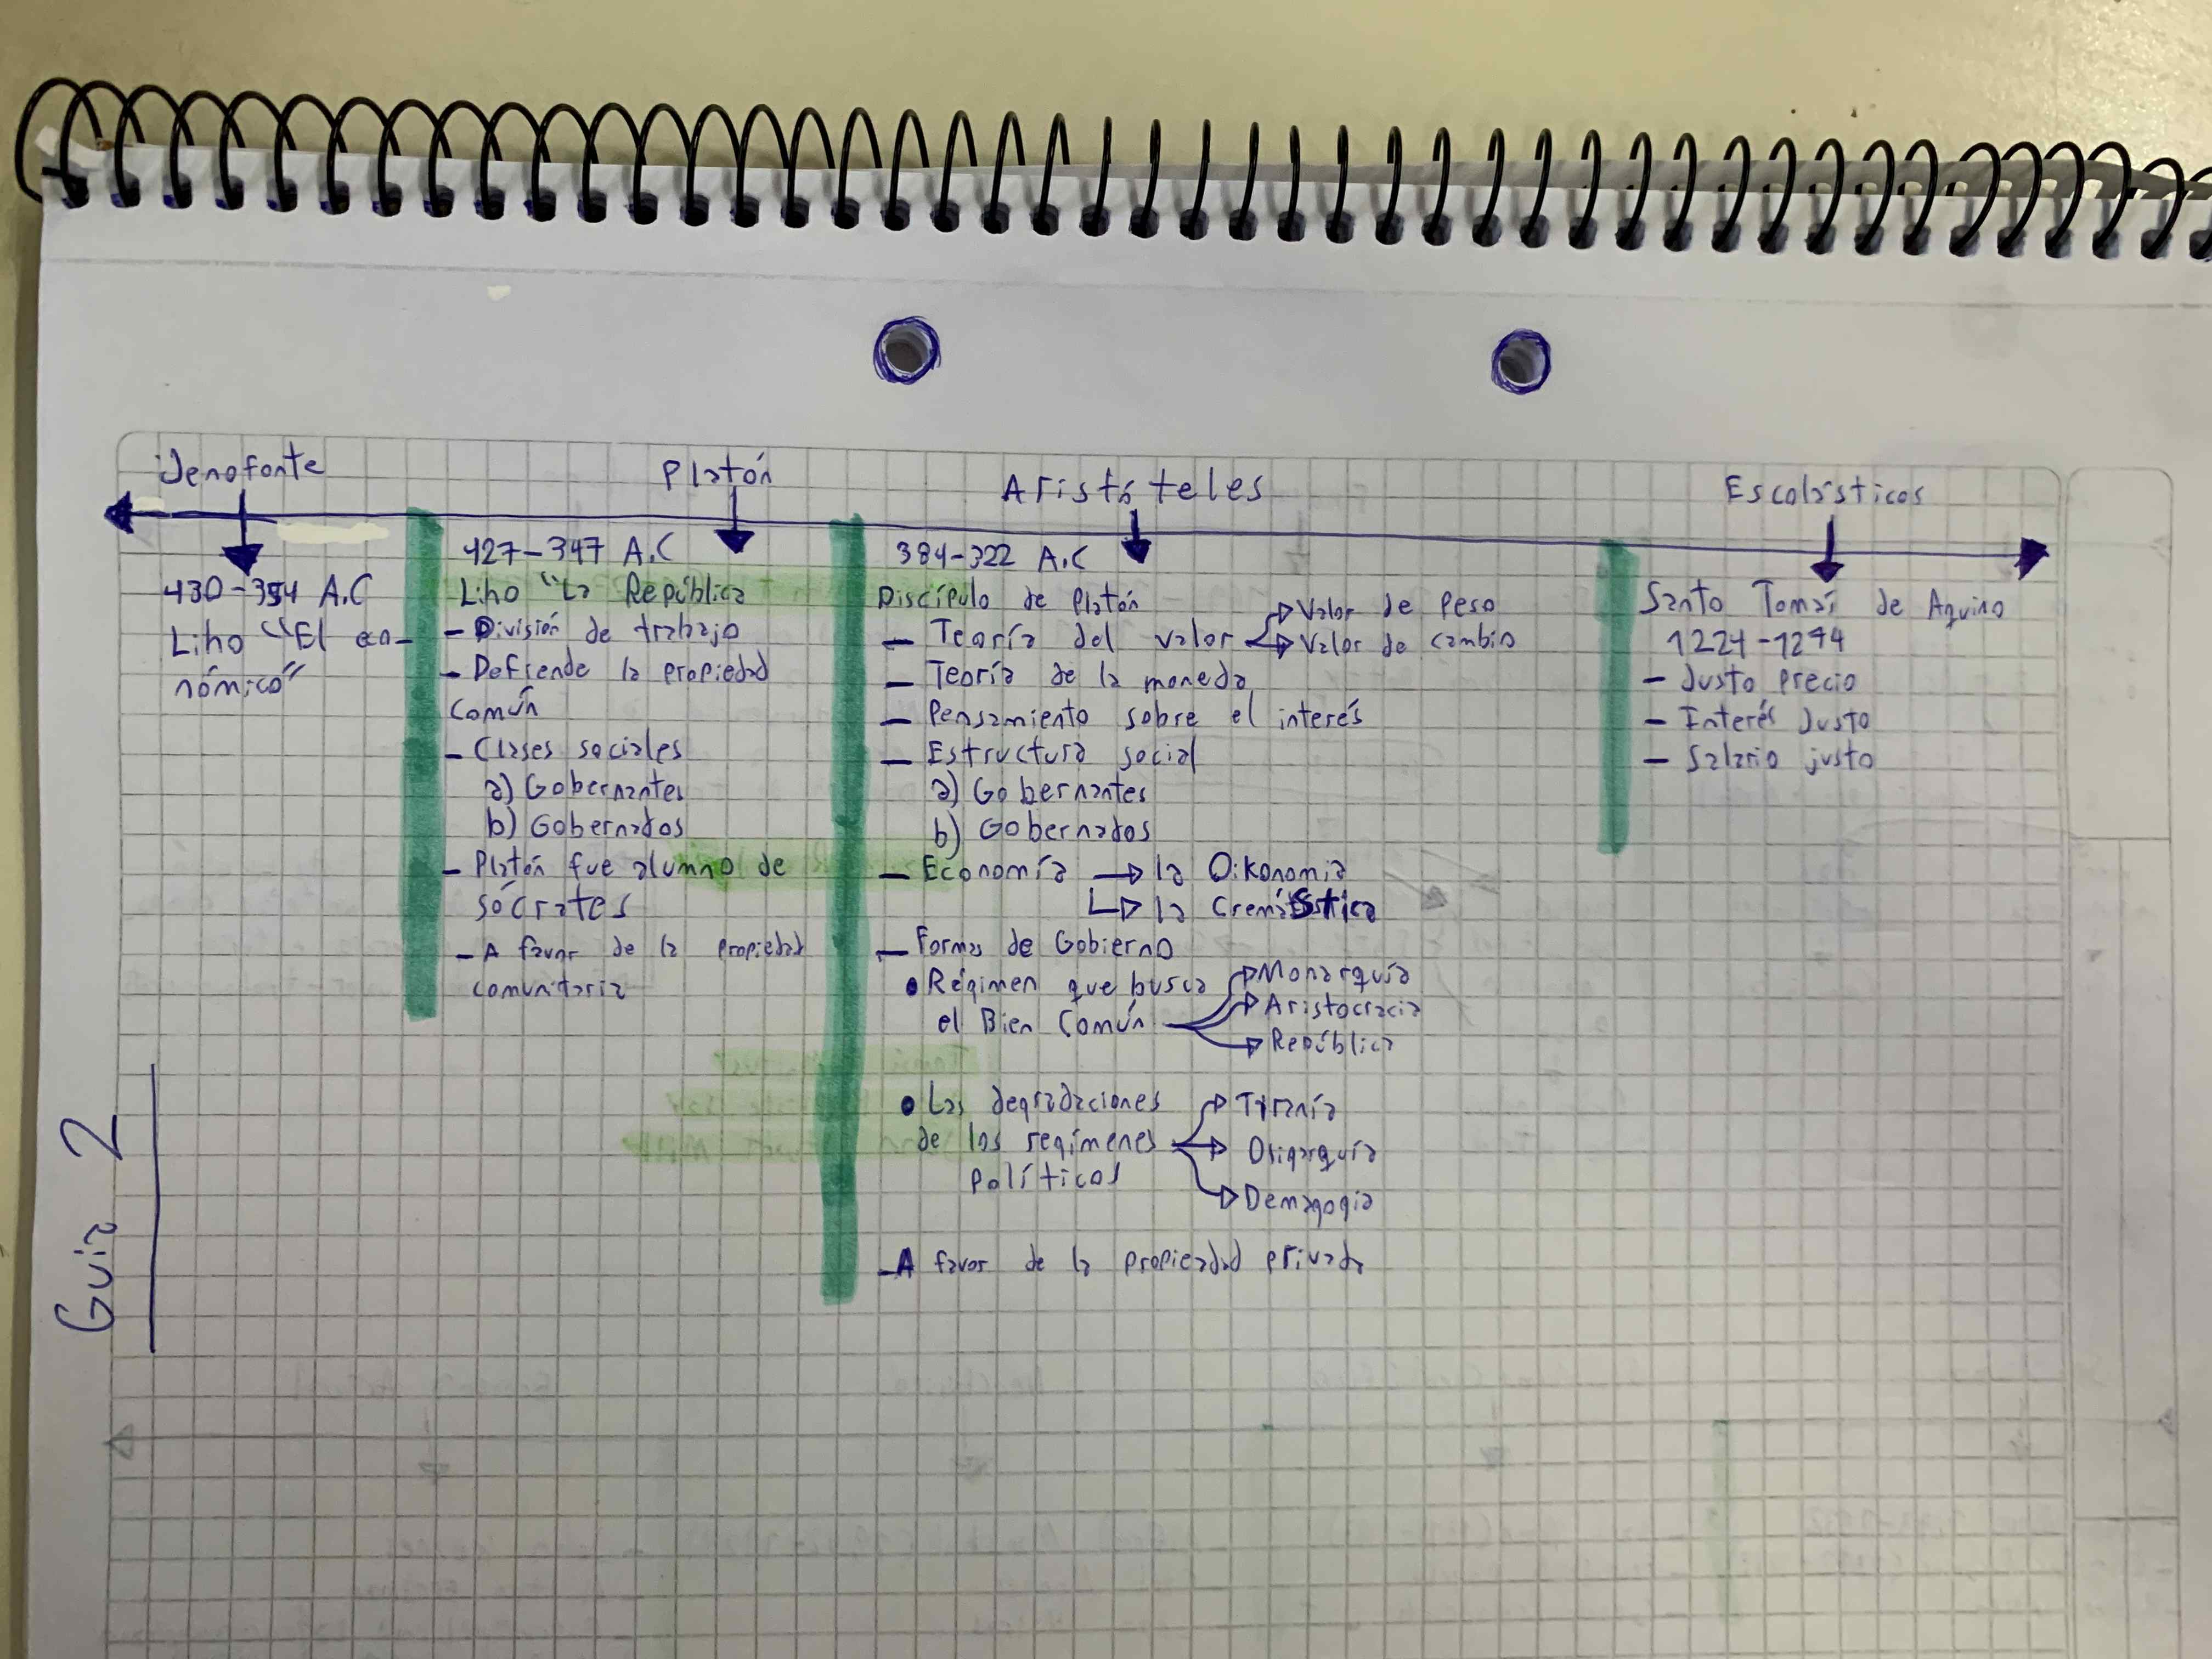 Jenofonte
430-354 A.C
Liho "El eco-
nómico"
Platón
427-347 A.C
Liho "La República
- División de trabajo
- Defiende la propiedad
común
- Clases sociales
a) Gobernantes
b) Gobernados
- Platón fue alumno de
sócrates
- A favor de la propiedad
comunitaria
Aristóteles
384-322 A.C
Discípulo de Platón
- Teoría del valor → Valor de peso
→ Valor de cambio
- Teoría de la moneda
- Pensamiento sobre el interés
- Estructura social
a) Gobernantes
b) Gobernados
- Economía → la Oikonomia
→ la Cremástica
- Formas de Gobierno
• Régimen que busca
el Bien Común
→ Monarquía
→ Aristocracia
→ República
• Las degradaciones
de los regímenes
políticos
→ Tiranía
→ Oligarquía
→ Demagogia
- A favor de la propiedad privada
Escolásticos
Santo Tomás de Aquino
1224-1274
- Justo precio
- Interés Justo
- Salario justo
Guia 2